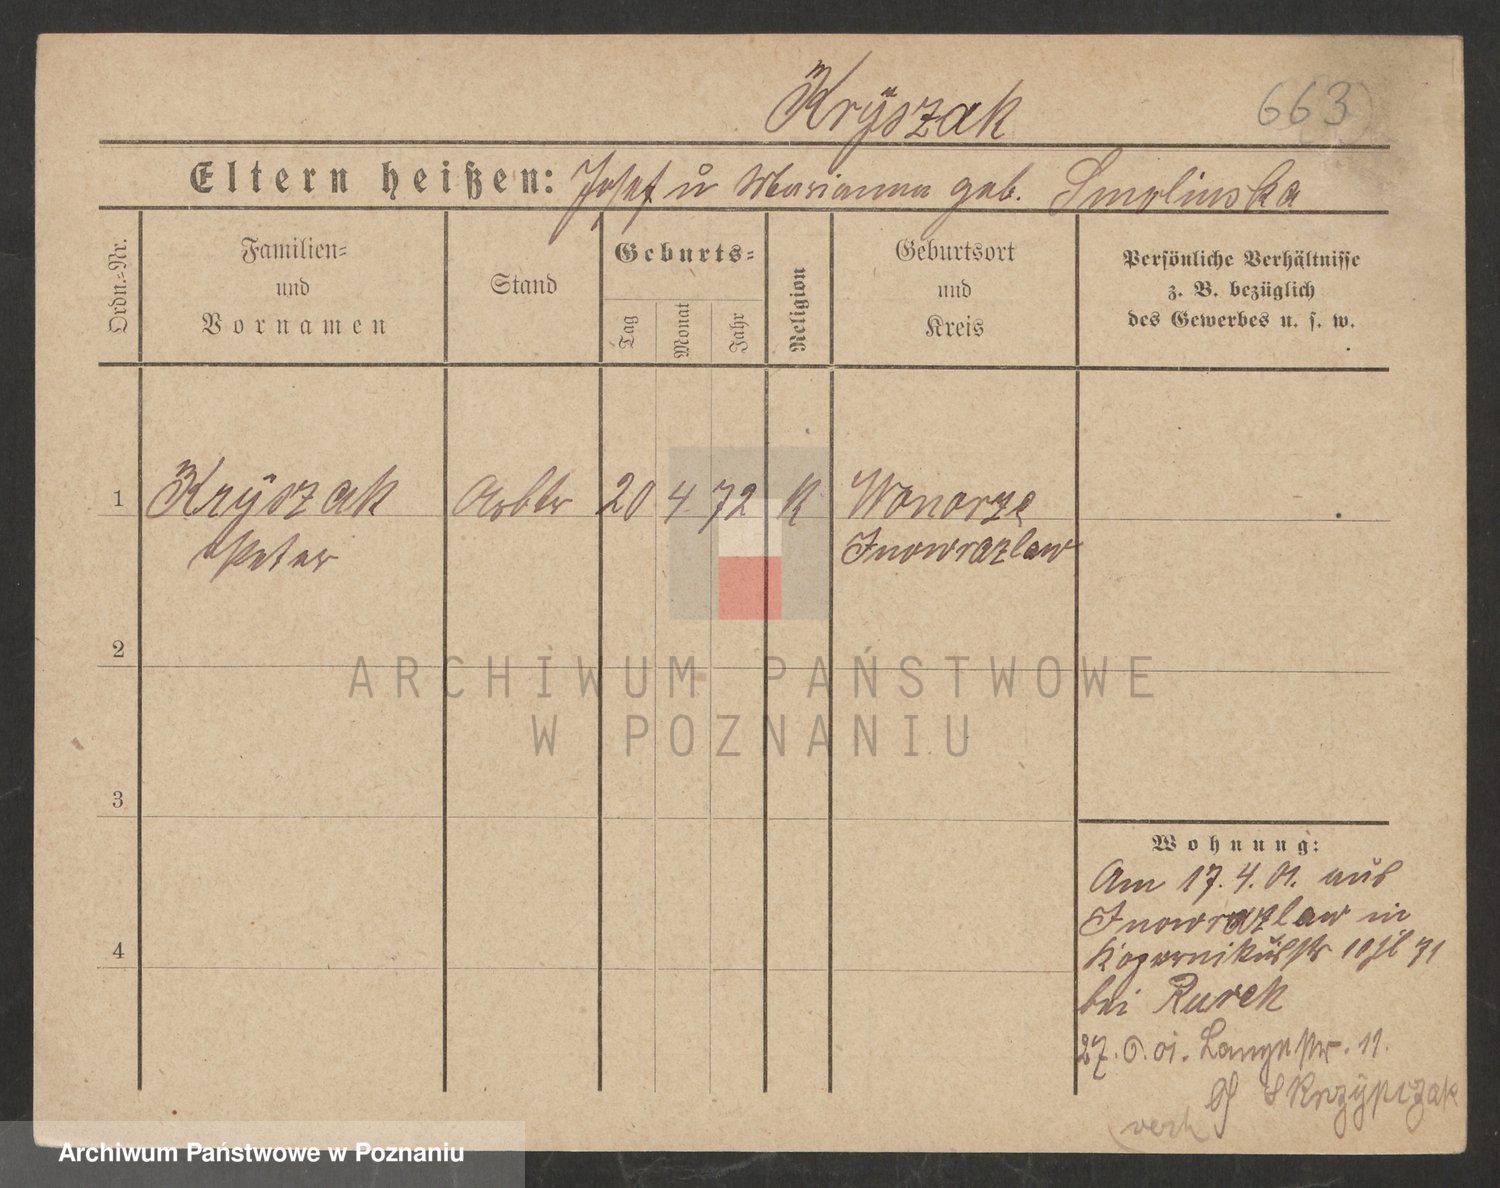 Kryszak
663
Eltern heißen: Josef u Marianna geb. Smolinska
Ordn.=Nr.
Familien=
und
Vornamen
Stand
Geburts=
Tag
Monat
Jahr
Religion
Geburtsort
und
Kreis
Persönliche Verhältnisse
z. B. bezüglich
des Gewerbes u. s. w.
1 Kryszak Arbtr 20 4 72 K Wonorze
Peter Inowrazlaw
2
3
4
ARCHIWUM PAŃSTWOWE
W POZNANIU
Wohnung:
Am 17.4.01. aus
Inowrazlaw in
Kopernikusstr 10
bei Rurek
27.6.01. Langestr. 11.
Skrzypczak
verh
Archiwum Państwowe w Poznaniu